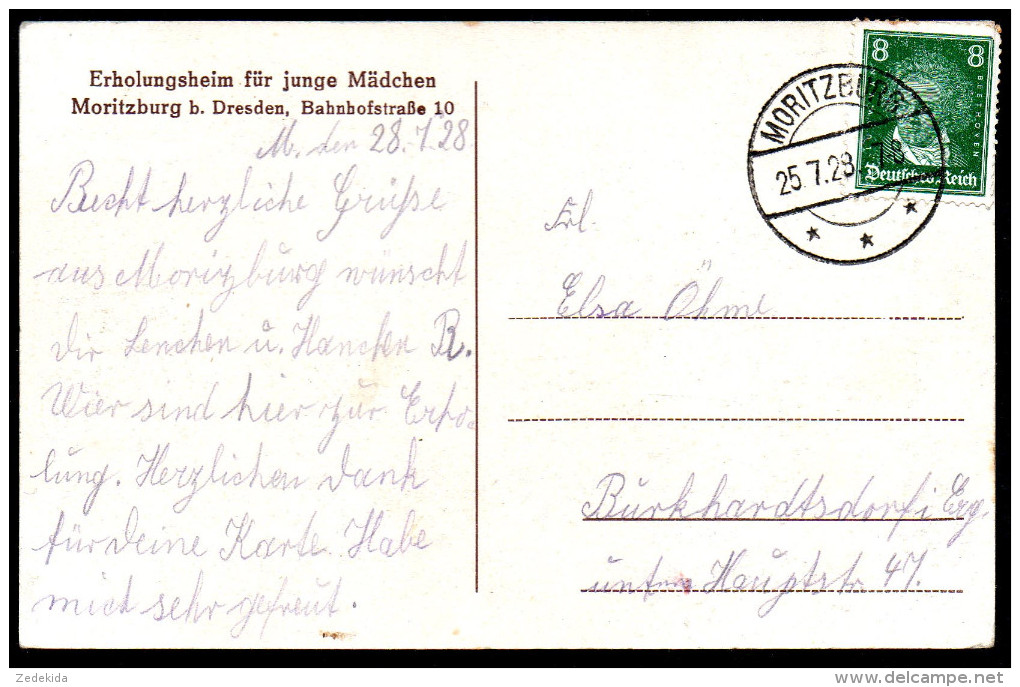 Erholungsheim für junge Mädchen
Moritzburg b. Dresden, Bahnhofstraße 10
M. den 28.7.28
Recht herzliche Grüße
aus Moritzburg wünscht
dir Lenchen u. Hanchen R.
Wier sind hier zur Erho-
lung. Herzlichen Dank
für Deine Karte. Habe
mich sehr gefreut.
8 8
BEETHOVEN
Deutsches Reich
MORITZBURG
25.7.28
Frl.
Elsa Öhme
Burkhardtsdorf i Erg.
untere Hauptstr 47.
Zedekida
delcampe.net